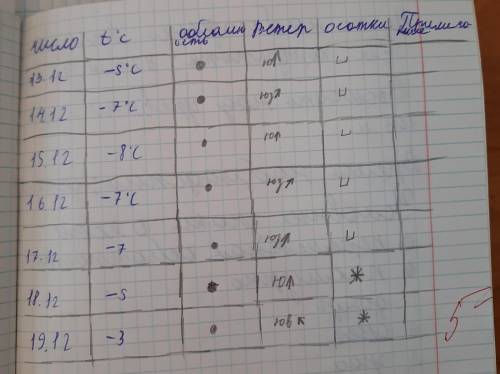 число t°c облачность ветер осатки Примечание
13.12 -5°C • ⊓
14.12 -7°C • ⊓
15.12 -8°C • ⊓
16.12 -7°C • ⊓
17.12 -7 • ⊓
18.12 -5 • *
19.12 -3 • *
5